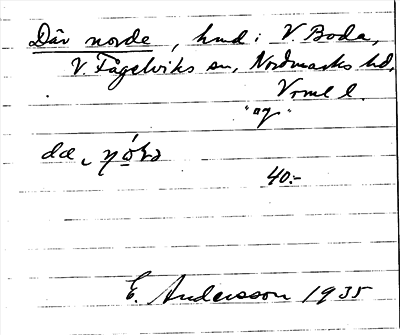 Där norde, hmd: V Boda,
V. Fågelviks sn, Nordmarks hd,
Vrml l.
"og"
40:-
E. Andersson 1935